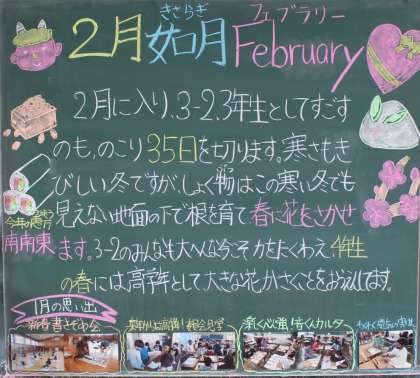 きさらぎ フェブラリー
2月如月February
2月に入り、3-2、3年生としてすごす
のも、のこり35日を切ります。寒さもき
びしい冬ですが、しょく物はこの寒い冬でも
見えない地面の下で根を育て春に花をさかせ
ます。3-2のみんなも大へんな今こそ力をたくわえ、4年生
の春には、高学年として、大きな花がさくことをおうえんしてます。
今年の恵方
南南東
1月の思い出
新春書きぞめ会
楽しく心強く!百人一首カルタ